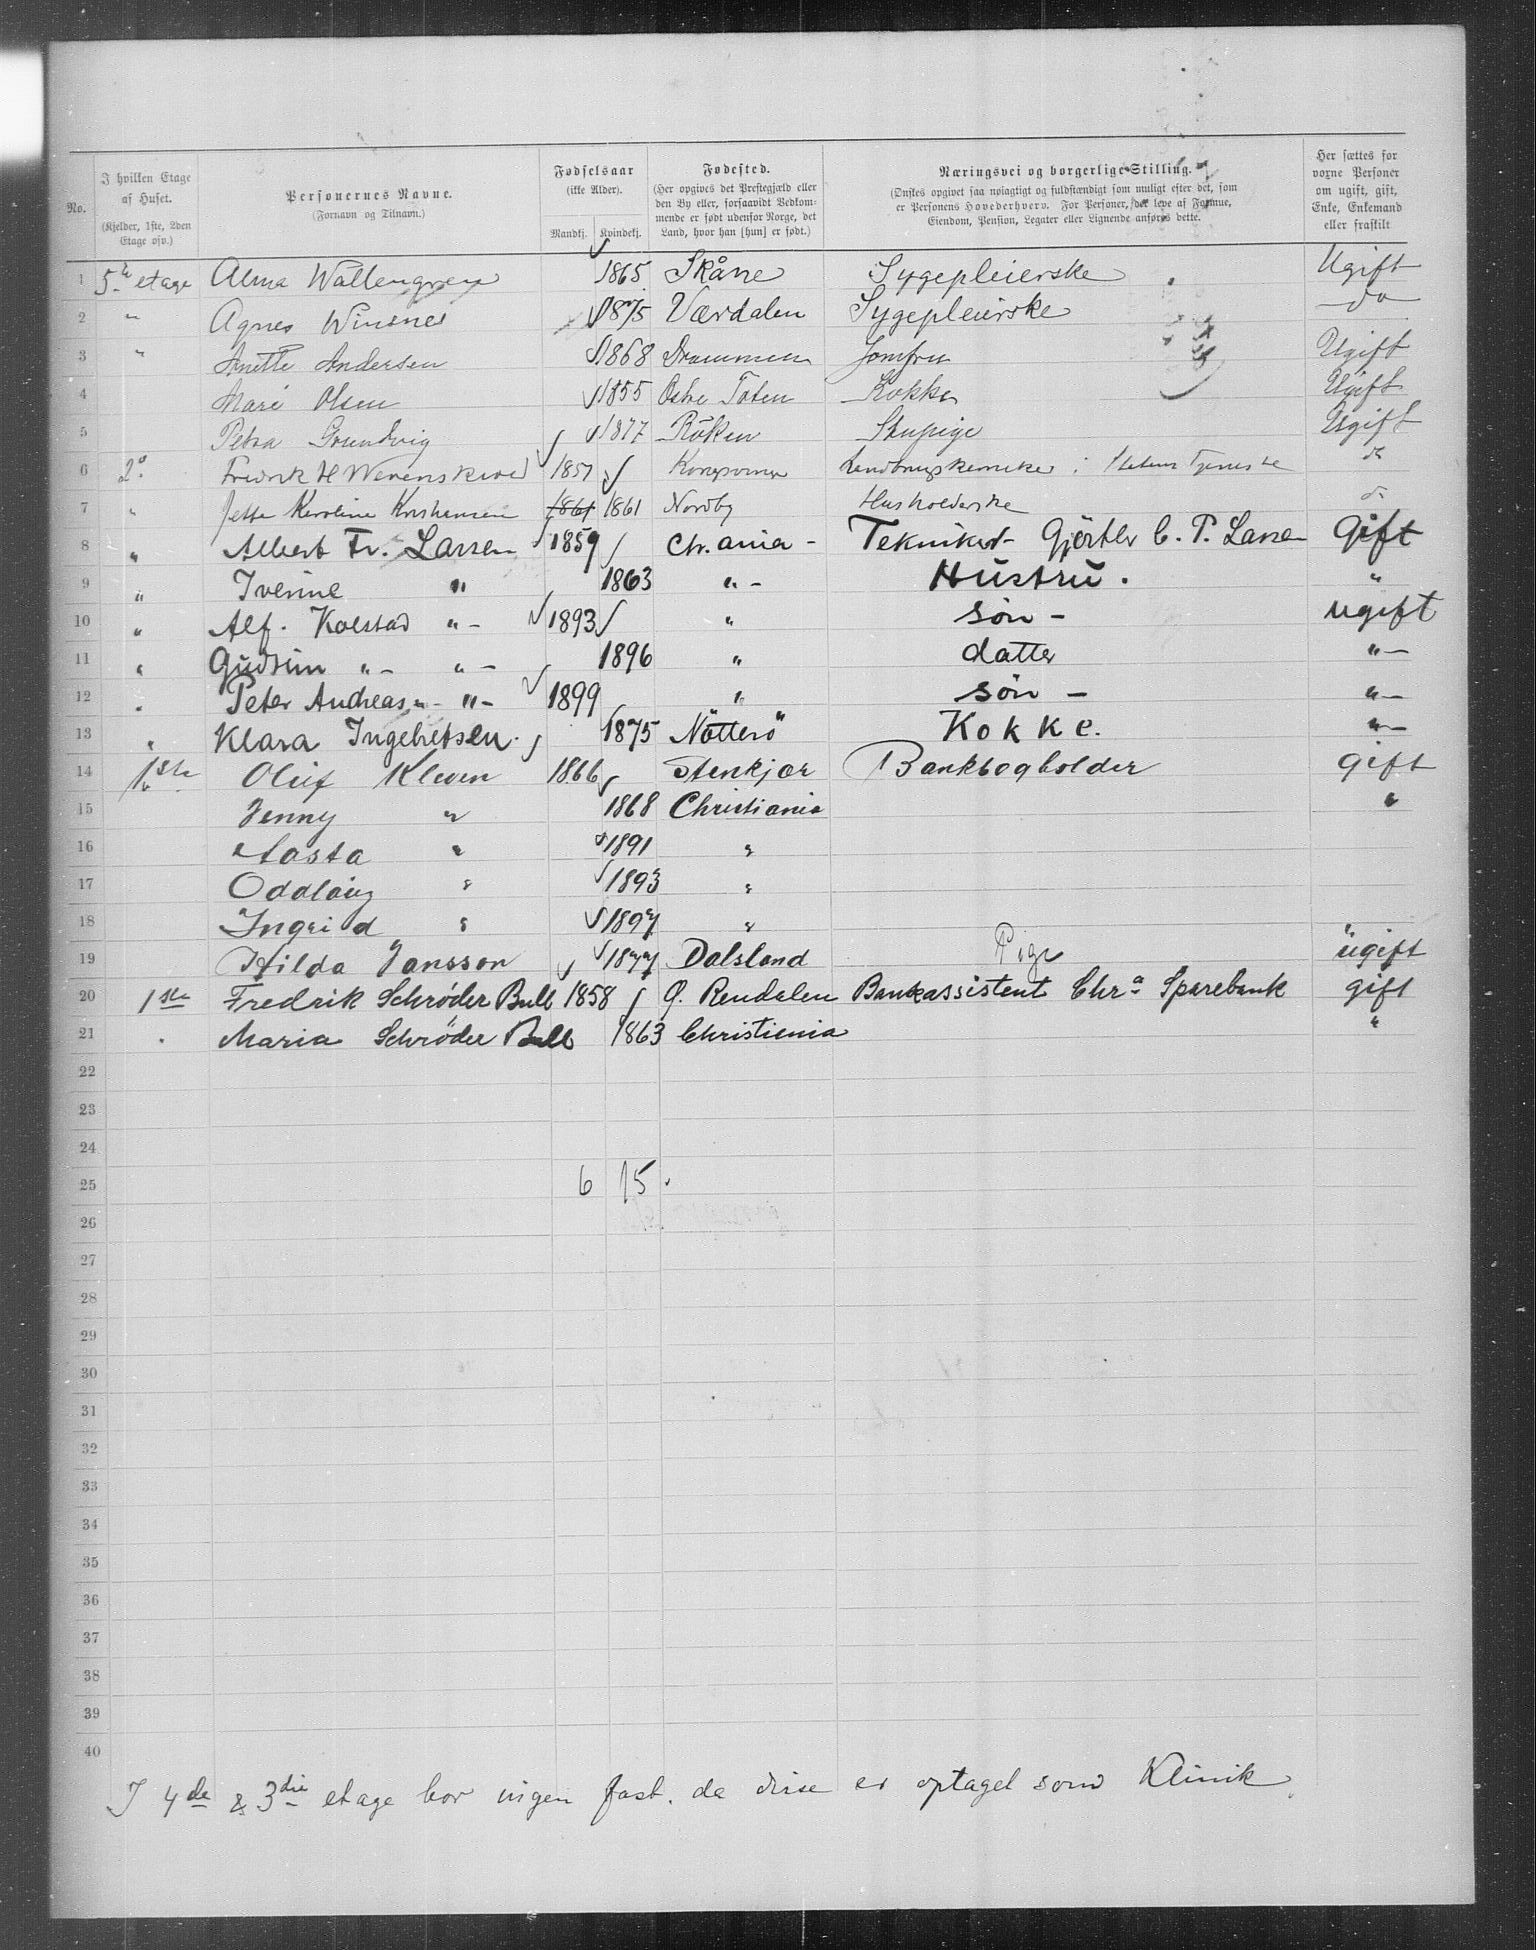 No.
I hvilken Etage af Huset. (Kjelder, 1ste, 2den Etage osv.)
Personernes Navne. (Fornavn og Tilnavn.)
Fødselsaar (ikke Alder). Mandkj. Kvindekj.
Fødested. (Her opgives det Prestegjæld eller den By eller, forsaavidt Vedkommende er født udenfor Norge, det Land, hvor han [hun] er født.)
Næringsvei og borgerlige Stilling. (Ønskes opgivet saa nøiagtigt og fuldstændigt som muligt efter det, som er Personens Hovederhverv. For Personer, der leve af Formue, Eiendom, Pension, Legater eller Lignende anføres dette.
Her sættes for voxne Personer om ugift, gift, Enke, Enkemand eller fraskilt
1 5te etage Alma Wallengren 1865 Skåne Sygepleierske Ugift
2 " Agnes Winsnes 1875 Værdalen Sygepleierske do
3 " Anette Andersen 1868 Drammen Jomfru Ugift
4 Mari Olsen 1855 Østre Toten Kokke Ugift
5 Petra Grundvig 1877 Röken Stupige Ugift
6 2 Fredrik H Werenskiold 1857 Kongsvinger Landbrugskemiker i Statens Tjeneste do
7 " Jette Karoline Kristiansen 1861 1861 Nordby Husholderske do
8 " Albert Fr. Larsen 1859 Chr.ania - Tekniker Gjørtler C. P. Larsen Gift
9 " Iverine " 1863 " - Hustru. "
10 " Alf. Kolstad " - 1893 " søn - ugift
11 " Gudrun " - " - 1896 " datter " -
12 " Peter Andreas " - " - 1899 " søn - " -
13 " Klara Ingebretsen. 1875 Nötterö Kokke. " -
14 1ste Oluf Kleven 1866 Stenkjær Bankbogholder gift
15 " Jenny " 1868 Christiania "
16 Aasta " 1891 "
17 Oddlaug " 1893 "
18 Ingrid " 1897 "
19 Hilda Jansson 1877 Dalsland Pige ugift
20 1ste Fredrik Schrøder Bull 1858 Ø. Rendalen Bankassistent Chra Sparebank gift
21 " Maria Schrøder Bull 1863 Christiania "
22
23
24
25 6 15.
26
27
28
29
30
31
32
33
34
35
36
37
38
39
40
I 4de & 3die etage bor ingen fast, da disse er optaget som Klinik